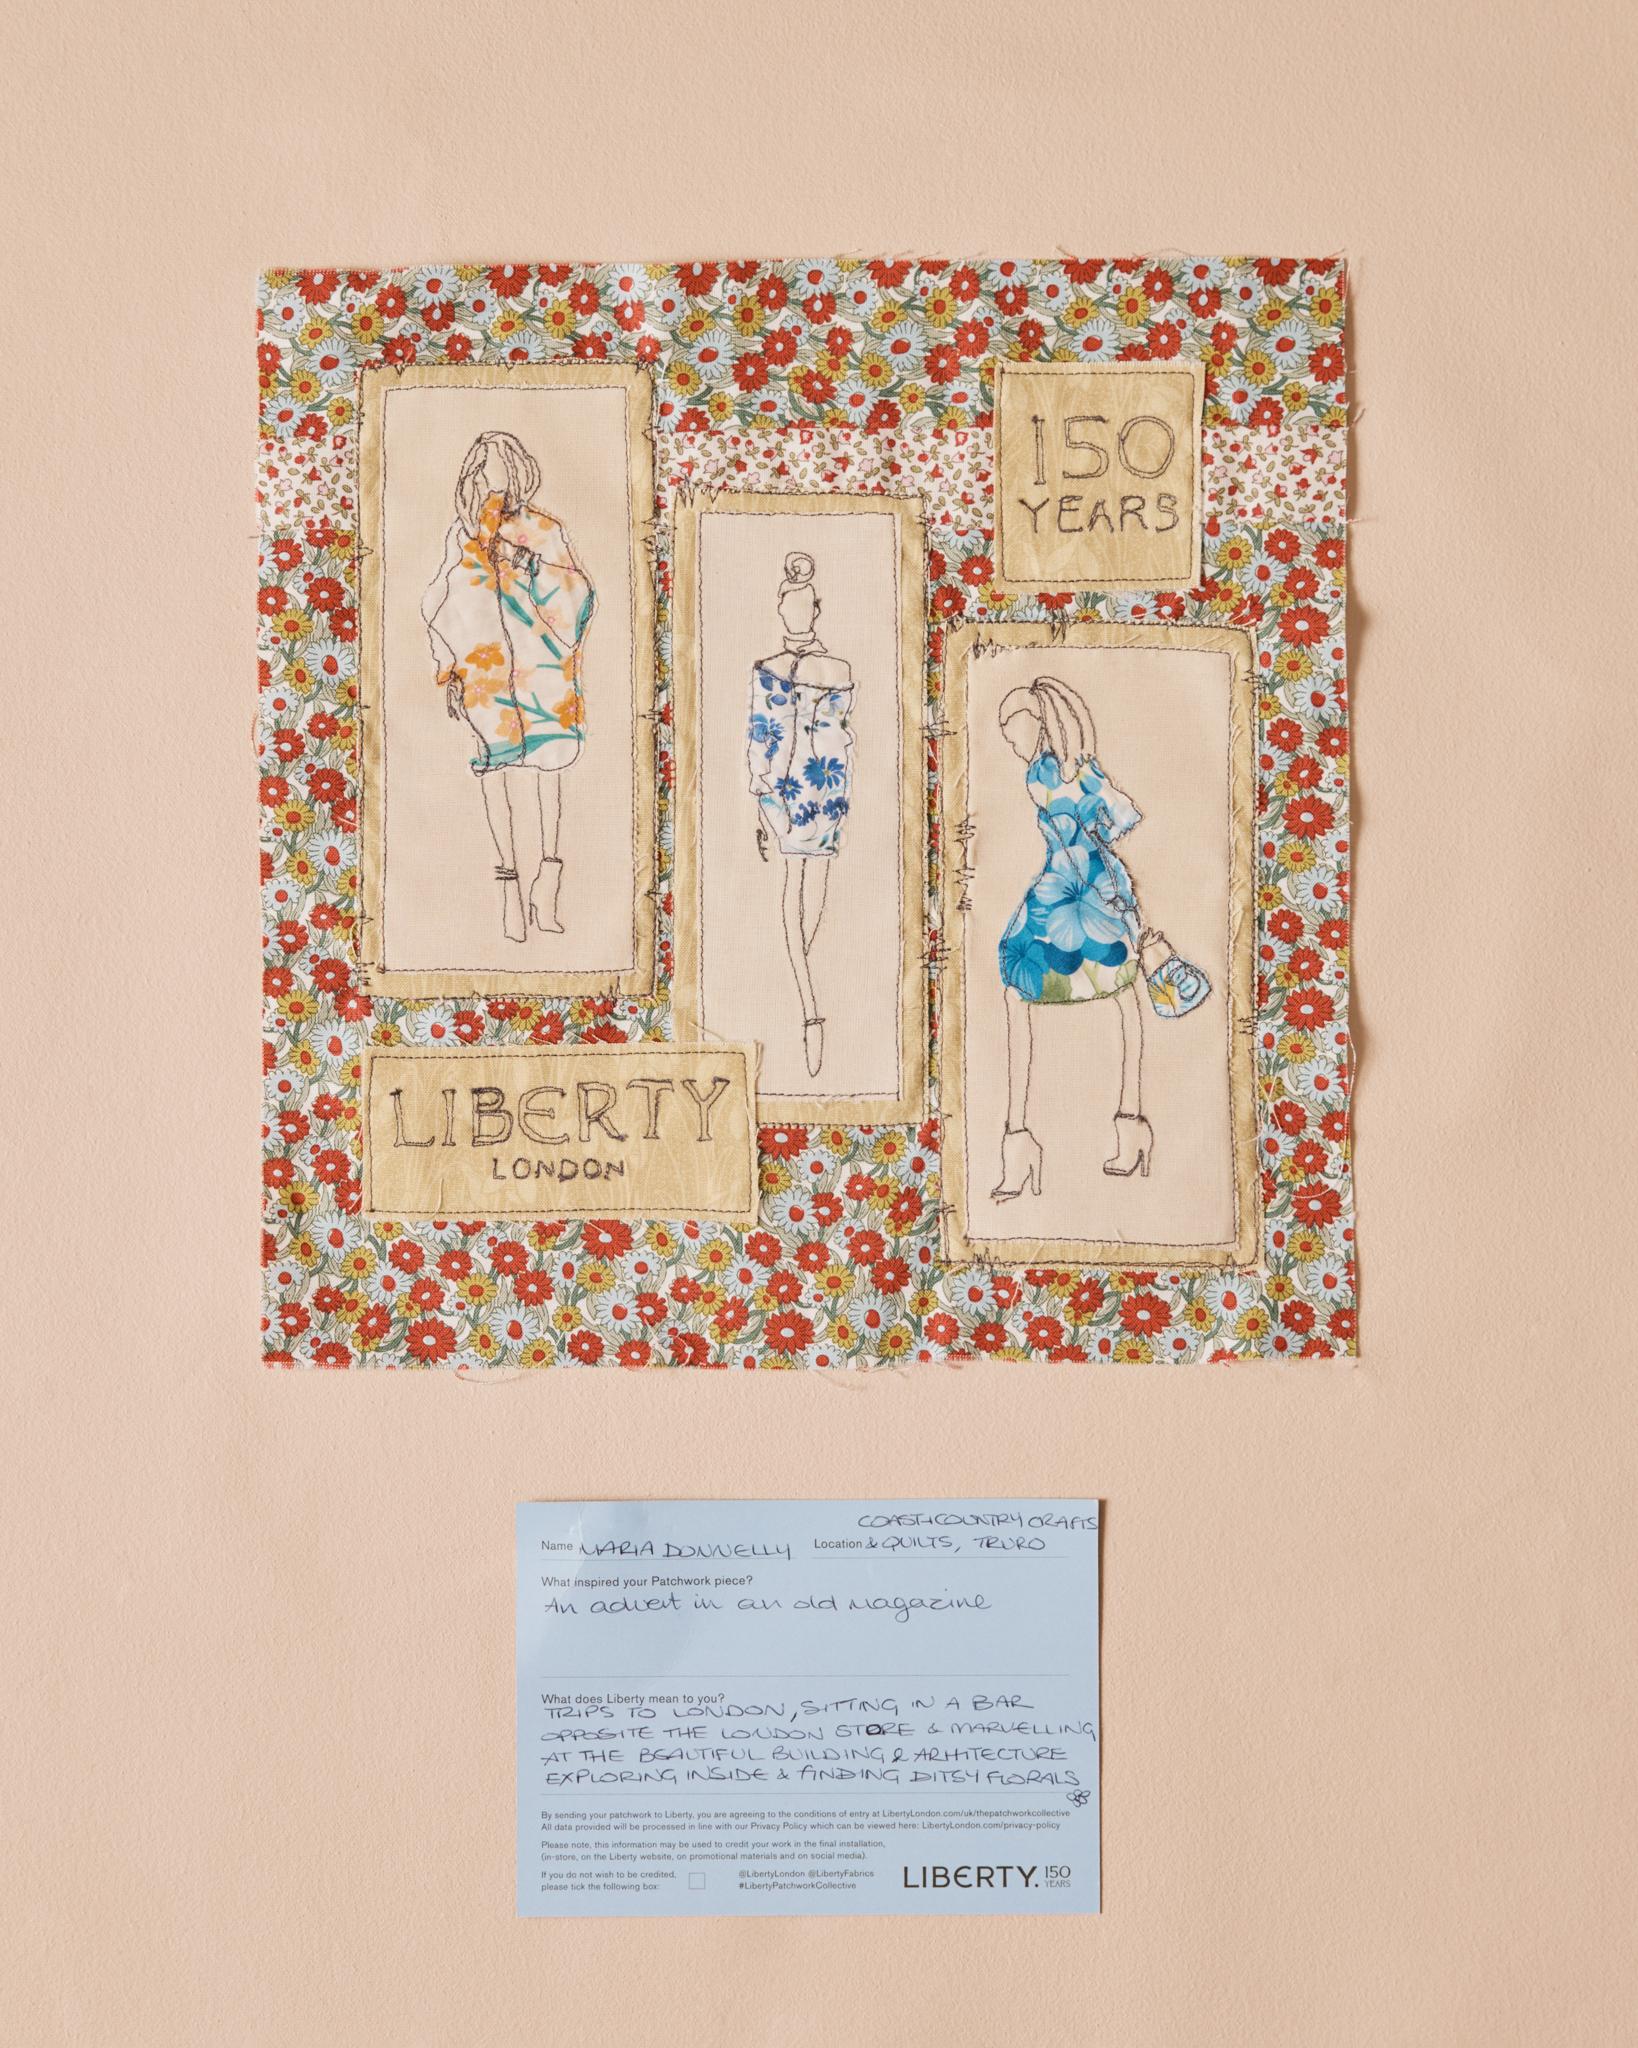 150
YEARS
LIBERTY
LONDON
COAST+COUNTRY CRAFTS
Name MARIA DONNELLY Location & QUILTS, TRURO
What inspired your Patchwork piece?
An advert in an old magazine
What does Liberty mean to you?
TRIPS TO LONDON, SITTING IN A BAR
OPPOSITE THE LONDON STORE & MARVELLING
AT THE BEAUTIFUL BUILDING & ARHITECTURE
EXPLORING INSIDE & FINDING DITSY FLORALS
By sending your patchwork to Liberty, you are agreeing to the conditions of entry at LibertyLondon.com/uk/thepatchworkcollective
All data provided will be processed in line with our Privacy Policy which can be viewed here: LibertyLondon.com/privacy-policy
Please note, this information may be used to credit your work in the final installation,
(in-store, on the Liberty website, on promotional materials and on social media).
If you do not wish to be credited,
please tick the following box:
@LibertyLondon @LibertyFabrics
#LibertyPatchworkCollective
LIBERTY. 150
YEARS